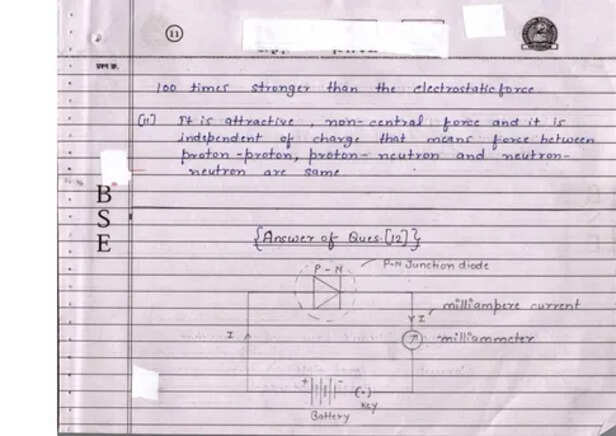 11
प्रश्न क्र.
100 times stronger than the electrostatic force
(ii) It is attractive, non-central force and it is
independent of charge that means force between
proton-proton, proton-neutron and neutron-
neutron are same
B
S
E
{Answer of Ques.[12]}
P-N
P-N Junction diode
milliampere current
I
I
milliammeter
+
-
(•)
Key
Battery